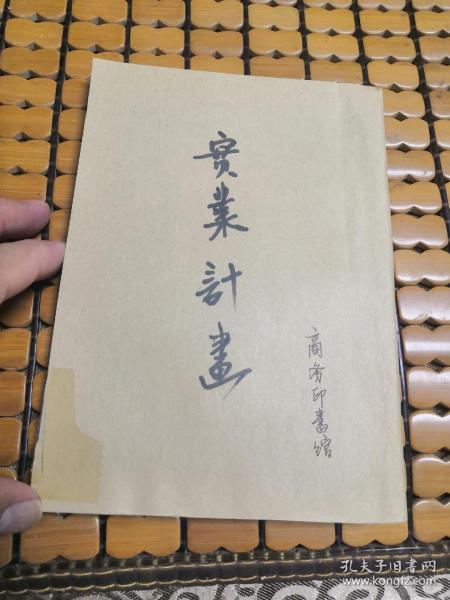 實業計畫
商务印書館
孔夫子旧书网
www.kongfz.com